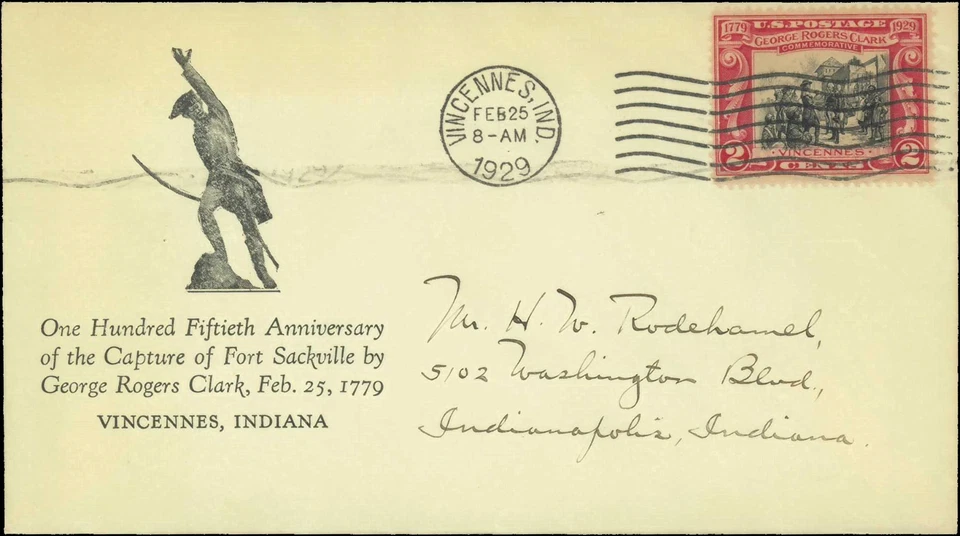 1779 U.S. POSTAGE 1929
GEORGE ROGERS CLARK
COMMEMORATIVE
VINCENNES
2 CENTS 2
VINCENNES, IND.
FEB 25
8-AM
1929
One Hundred Fiftieth Anniversary
of the Capture of Fort Sackville by
George Rogers Clark, Feb. 25, 1779
VINCENNES, INDIANA
Mr. H. W. Rodehamel,
5102 Washington Blvd.,
Indianapolis, Indiana.